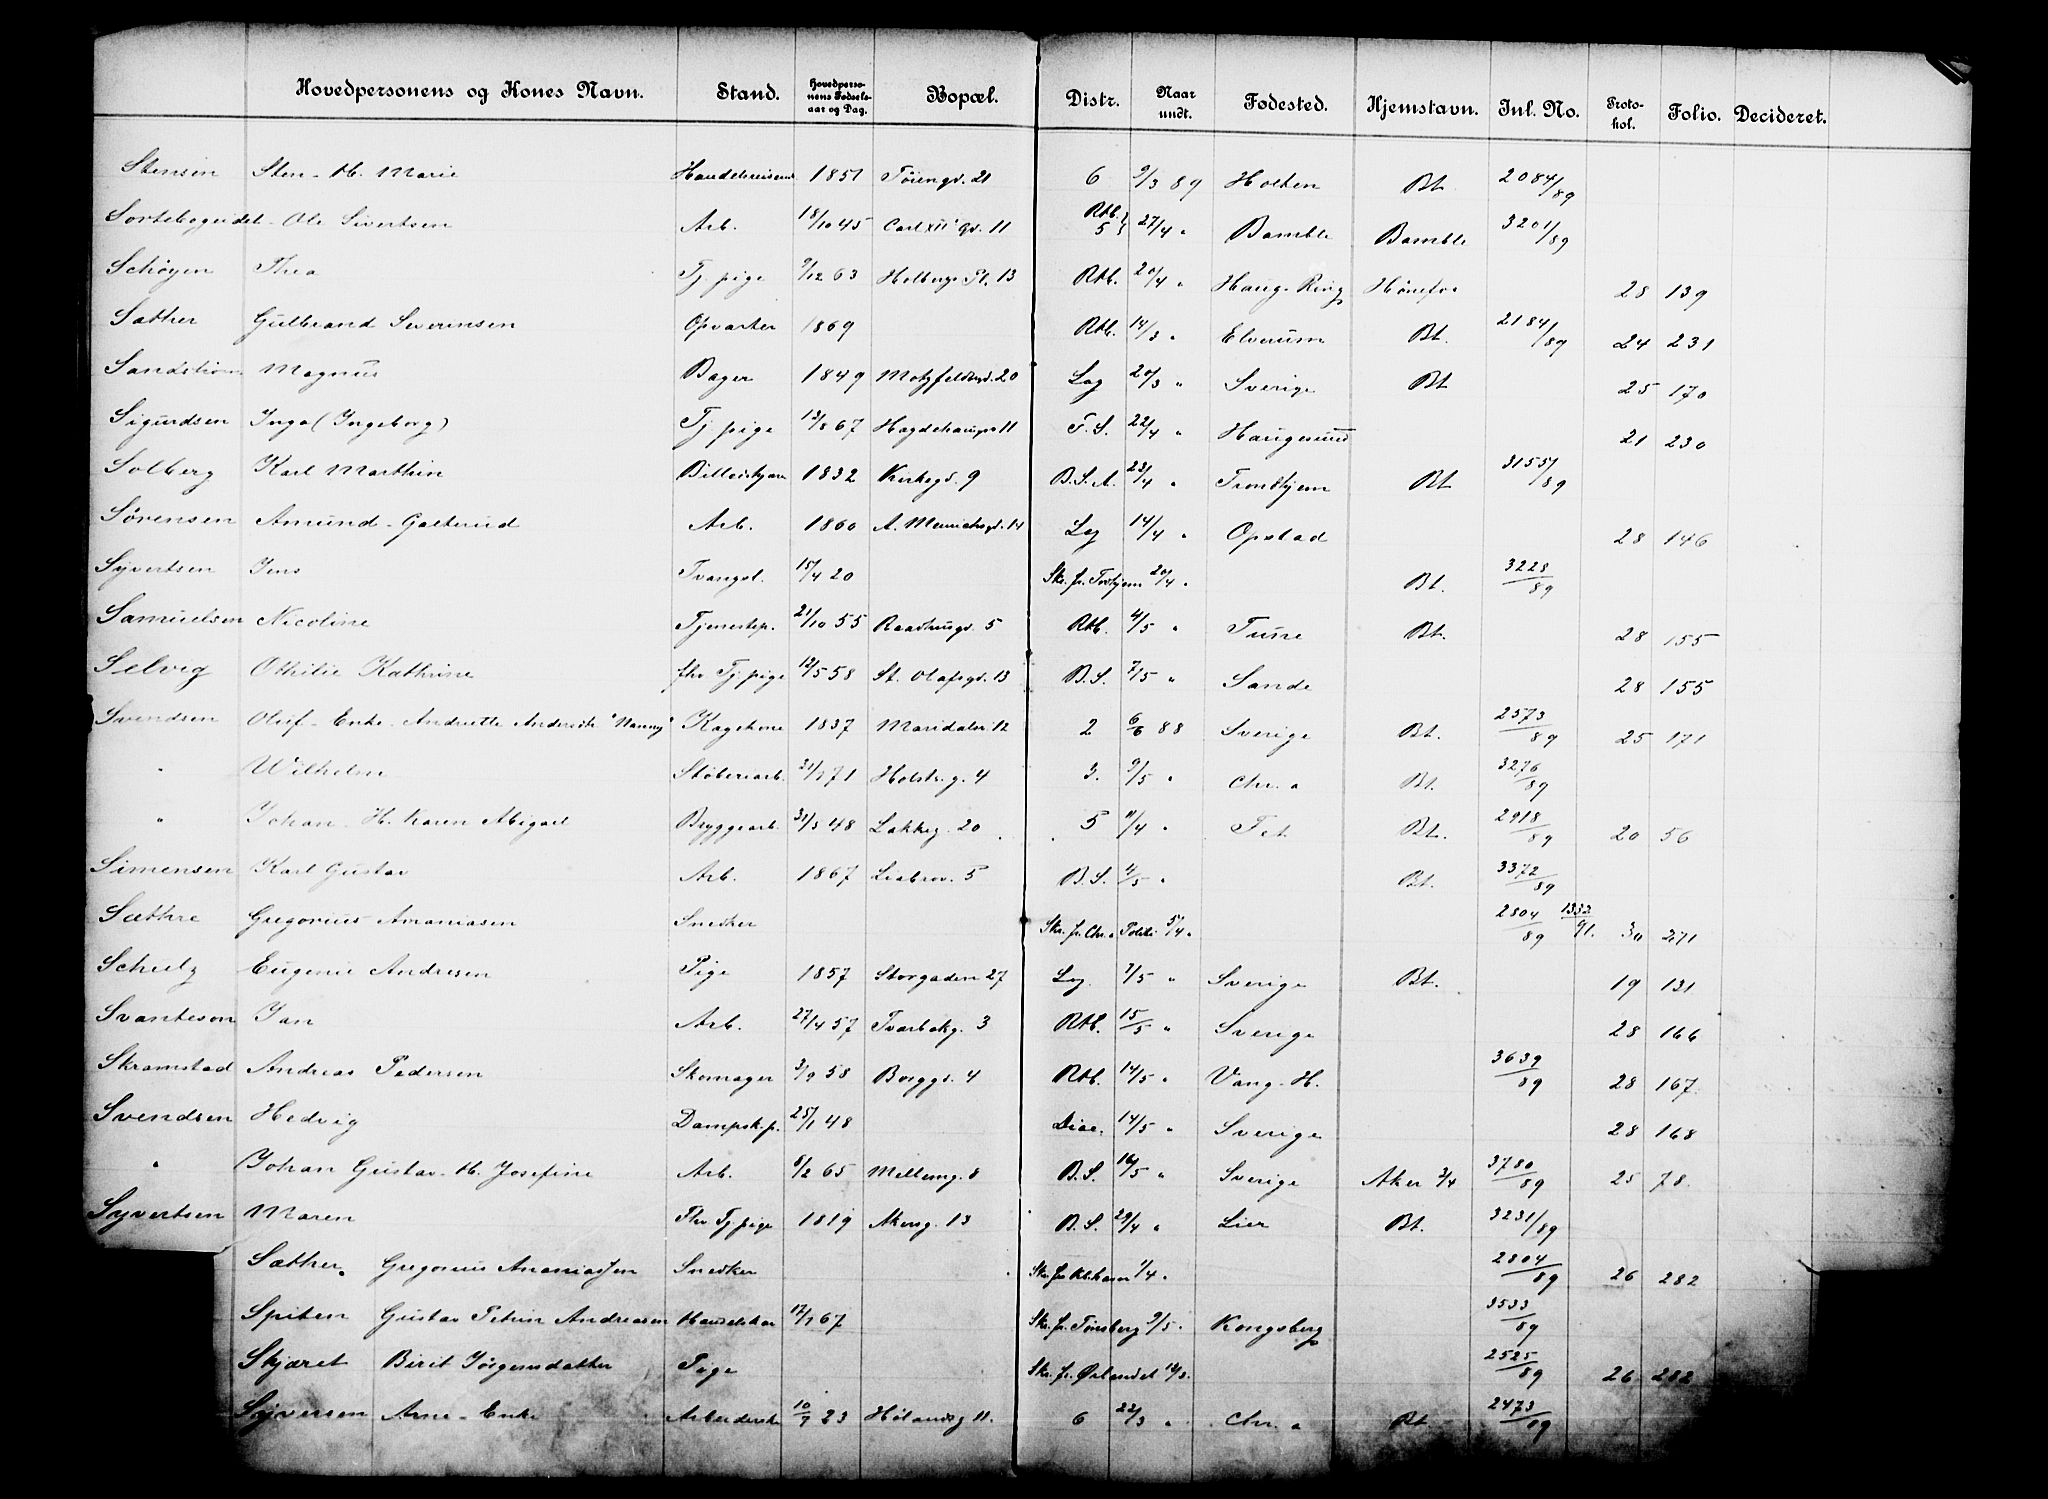 Hovedpersonens og Kones Navn. Stand. Hovedpersonens Fødselsaar og Dag. Bopæl. Distr. Naar undt. Fødested. Hjemstavn. Inl. No. Protokol. Folio. Decideret.
Stensen Sten - H. Marie Handelsreisende 1851 Töiengd. 21 6 9/3 89 Holten Bt. 2084/89
Ole Sivertsen Arb. 18/10 45 Carl XII' gd. 11 Rtb. 5 27/4 " Bamble Bamble 3201/89
Schøyen Thea Tj. pige 9/12 63 Holbergs Pl. 13 Rtb. 20/4 " Haug - Ring Hönefos 28 139
Sæther Gulbrand Severinsen Opvarter 1869 Rtb. 14/3 " Elverum Bt. 2184/89 24 231
Sandström Magnus Bager 1849 Motzfeldtsgd. 20 Log 20/3 " Sverige Bt 25 170
Sigurdsen Inga (Ingeborg) Tj. pige 13/8 67 11 F.S. 22/4 " Haugesund 21 230
Solberg Karl Marthin 1832 Kirkegd. 9 B.S.A. 23/4 " Trondhjem Bt 3155/89
Sörensen Amund - Gaterud Arb. 1860 A. Munchsgd. 14 Log 14/4 " Opstad 28 146
Syvertsen Jens Tvangsl. 15/4 20 Skr. fr. 20/4 " Bt. 3228/89
Samuelsen Nicoline Tjenestep. 21/10 55 Raadhusgd. 5 Rtb. 4/5 " Tune Bt. 28 155
Selvig Othilie Kathrine fhv Tj. pige 12/5 58 St. Olafsgd. 13 B.S. 7/5 " Sande 28 155
Svendsen Oluf - Enke - Andriette "Nanny" Kagekone 1837 Maridalsv. 12 2 6/6 88 Sverige Bt. 2573/89 25 171
" Wilhelm Støberiarb. 21/7 71 Holstsg. 4 3. 9/5 " Chr. a Bt. 3276/89
" Johan - H. Karen Abigael Bryggearb. 31/3 48 Lakkeg. 20 5 11/4 " Fet Bt. 2918/89 20 56
Simensen Karl Gustav Arb. 1867 Liabrov. 5 B.S. 4/5 " Bt. 3372/89
Sæthre Gregorius Annaniasen Snedker Skr. fr. Chr. a Politi 5/4 " 2804/89 1332/91. 30 271
Schulz Eugenie Andresen Pige 1857 Storgaden 27 Log. 7/5 " Sverige Bt. 19 131
Svanteson Jan Arb. 27/4 57 Tvarbakg. 3 Rtb. 15/5 " Sverige 28 166
Skramstad Andreas Pedersen Skomager 3/9 58 Borggd. 4 Rtb. 14/5 " Vang - H. 3639/89 28 167.
Svendsen Hedvig Dampsk.p. 25/1 48 Diac. 14/5 " Sverige 28 168
" Johan Gustav - H. Josefine Arb. 8/2 65 Mellemg. 8 B.S. 16/5 " Sverige Aker 3/4 3780/89 25 78.
Syvertsen Maren Fhv Tj. pige 1819 Akersg. 13 B.S. 29/4 " Lier Bt. 3231/89
Sæther. Gregorius Ananiassen Snedker Skr. fr. 1/4 " 2804/89 26 282
Spiten Gustav Petrin Andreasen Handelskar 17/7 67 Skr. fr. Tönsberg 9/5 " Kongsberg 3533/89
Skjæret Birit Jörgensdatter Pige Skr. fr. Ørlandet 14/3. 2525/89 26 282
Syversen Arne - Enke Arbeiderske 10/7 23 Hölandsg 11. 6 22/3 " Chr. a Bt 2473/89